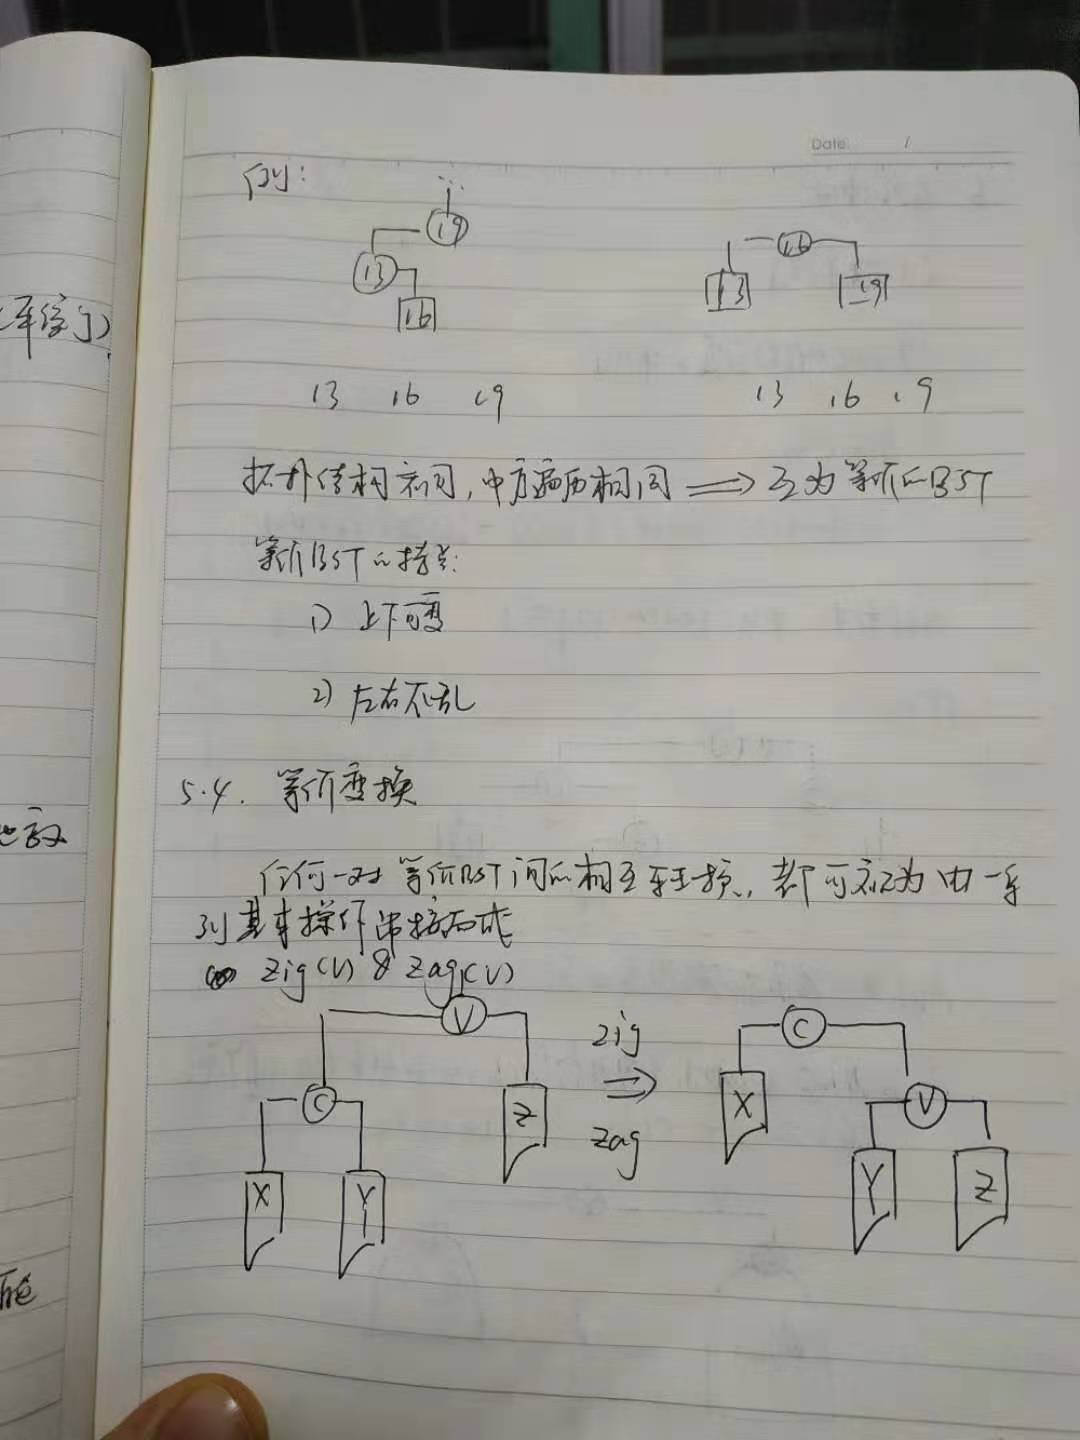 Date /
例:
19
13
16
16
13 19
13 16 19
13 16 19
拓扑结构不同,中序遍历相同 ⟹ 互为等价的BST
等价BST的特点:
1) 上下可变
2) 左右不乱
5.4. 等价变换
任何一对等价BST间的相互转换,都可视为由一系
列基本操作串接而成
zig(V) & zag(V)
V zig C
C Z zag X V
X Y Y Z
(平衡
地高